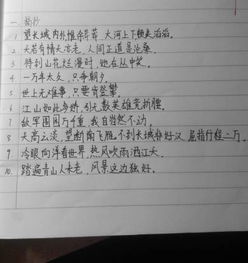 一 摘抄
1 望长城内外惟余莽莽,大河上下顿失滔滔。
2 天若有情天亦老,人间正道是沧桑。
3 待到山花烂漫时,她在丛中笑。
4 一万年太久,只争朝夕。
5 世上无难事,只要肯登攀。
6 江山如此多娇,引无数英雄竞折腰。
7 敌军围困万千重,我自岿然不动。
8 天高云淡,望断南飞雁,不到长城非好汉,屈指行程二万。
9 冷眼向洋看世界,热风吹雨洒江天。
10 踏遍青山人未老,风景这边独好。